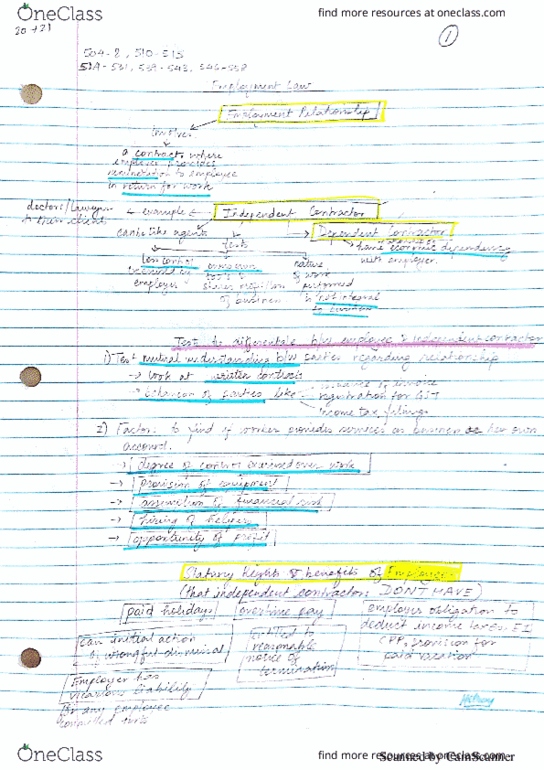 OneClass
find more resources at oneclass.com
20+21
1
504-8, 510-513
Employment Law
Employment Relationship
involve
a contract where
employer provides
remuneration to employee
in return for work
doctors/lawyers
to their clients
example
Independent Contractor
can be like agents
tests
Dependent Contractor
have economic dependency
with employer
less control
exercised by
employer
ownership
tools
of business
nature
of work
performed
is not integral
to business
Test to differentiate b/w employee & independent contractor
1) Test mutual understanding b/w parties regarding relationship
→ look at written contracts
→ behaviour of parties like
issuance of invoice
registration for GST
income tax filings
2) Factors to find if worker provides services as business on her own
account.
→ degree of control exercised over work
→ provision of equipment
→ assumption of financial risk
→ hiring of helpers
→ opportunity of profit
Statutory Rights & benefits of Employees
(that independent contractors DON'T HAVE)
paid holidays
overtime pay
employer obligation to
deduct income taxes, EI
CPP, provision for
paid vacation
can initial action
of wrongful dismissal
entitled to
reasonable
notice of
termination
Employer has
vicarious liability
for any employee
committed torts
OneClass
find more resources at oneclass.com
Scanned by CamScanner